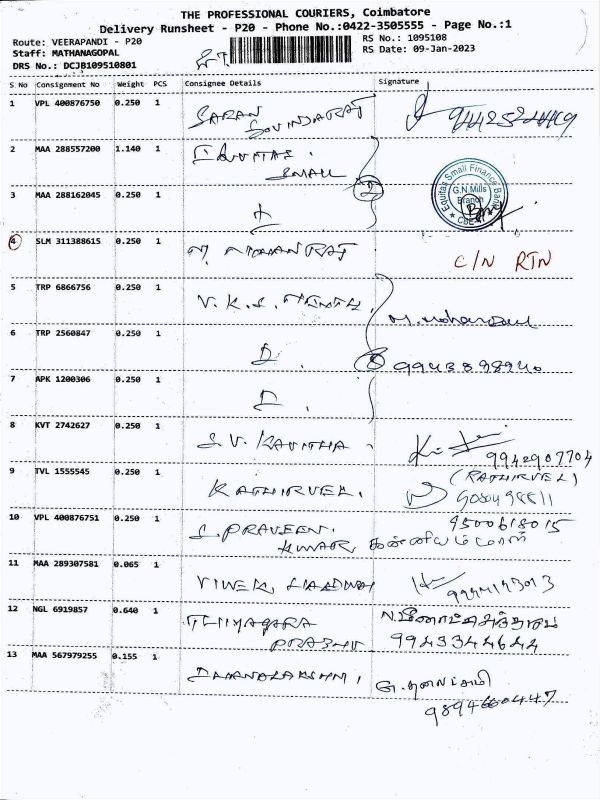 THE PROFESSIONAL COURIERS, Coimbatore
Delivery Runsheet - P20 - Phone No.:0422-3505555 - Page No.:1
Route: VEERAPANDI - P20
RS No.: 1095108
Staff: MATHANAGOPAL
RS Date: 09-Jan-2023
DRS No.: DCJB109510801
S.No Consignment No Weight PCS Consignee Details Signature
1 VPL 400876750 0.250 1 SARAN GOVINDARAJ
2 MAA 288557200 1.140 1 EQUITAS SMALL
Equitas Small Finance Bank
G.N.Mills
Branch
CBE
3 MAA 288162045 0.250 1
4 SLM 311388615 0.250 1 M. MOHANRAJ C/N RTN
5 TRP 6866756 0.250 1 V.K.S.
6 TRP 2560847 0.250 1 D. 9943898940
7 APK 1200306 0.250 1
8 KVT 2742627 0.250 1 S.V. KAVITHA 9942907704
9 TVL 1555545 0.250 1 KATHIRVEL. (RATHIRVEL)
10 VPL 400876751 0.250 1 S. PRAVEEN KUMAR 9500618015
11 MAA 289307581 0.065 1 VIVEK
12 NGL 6919857 0.640 1 THIYAGARA PRABHU 9943344644
13 MAA 567979255 0.155 1 DHANALAKSHMI 9894660447